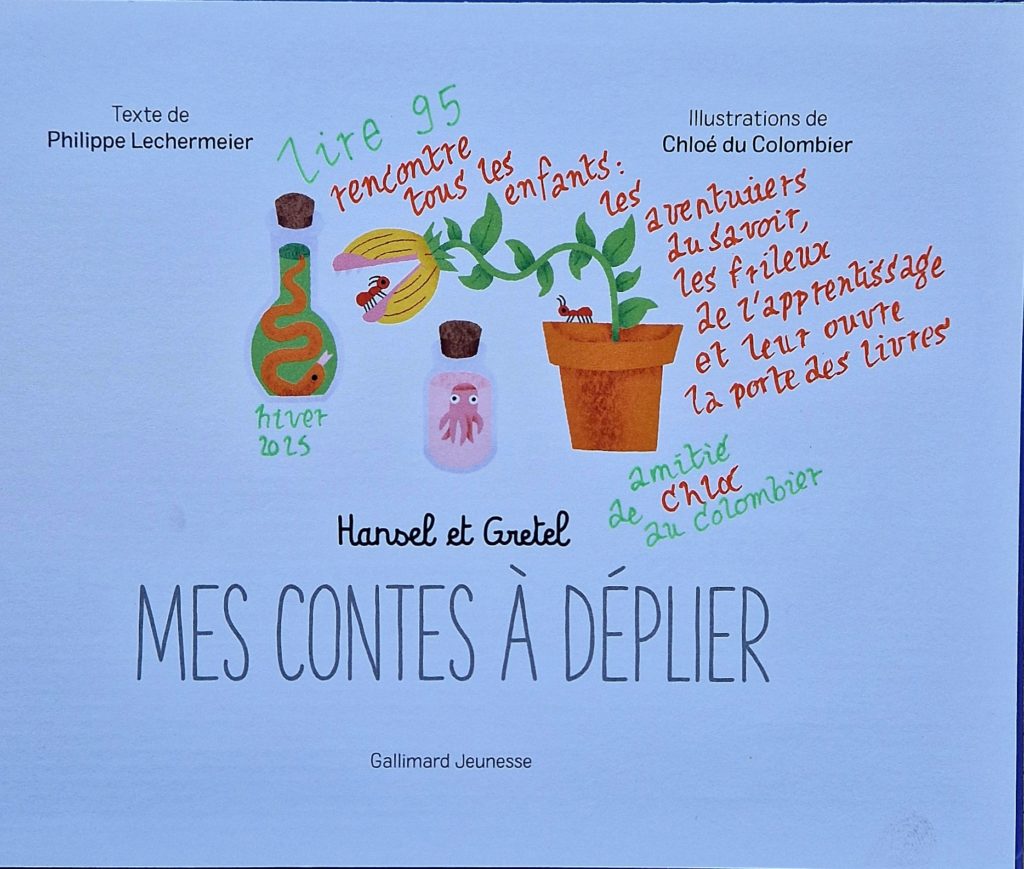 Texte de
Philippe Lechermeier
Illustrations de
Chloé du Colombier
lire 95
rencontre
tous les
enfants :
les
aventuriers
du savoir,
les frileux
de l'apprentissage
et leur ouvre
la porte des livres
hiver
2025
amitié
de Chloé
du Colombier
Hansel et Gretel
MES CONTES À DÉPLIER
Gallimard Jeunesse